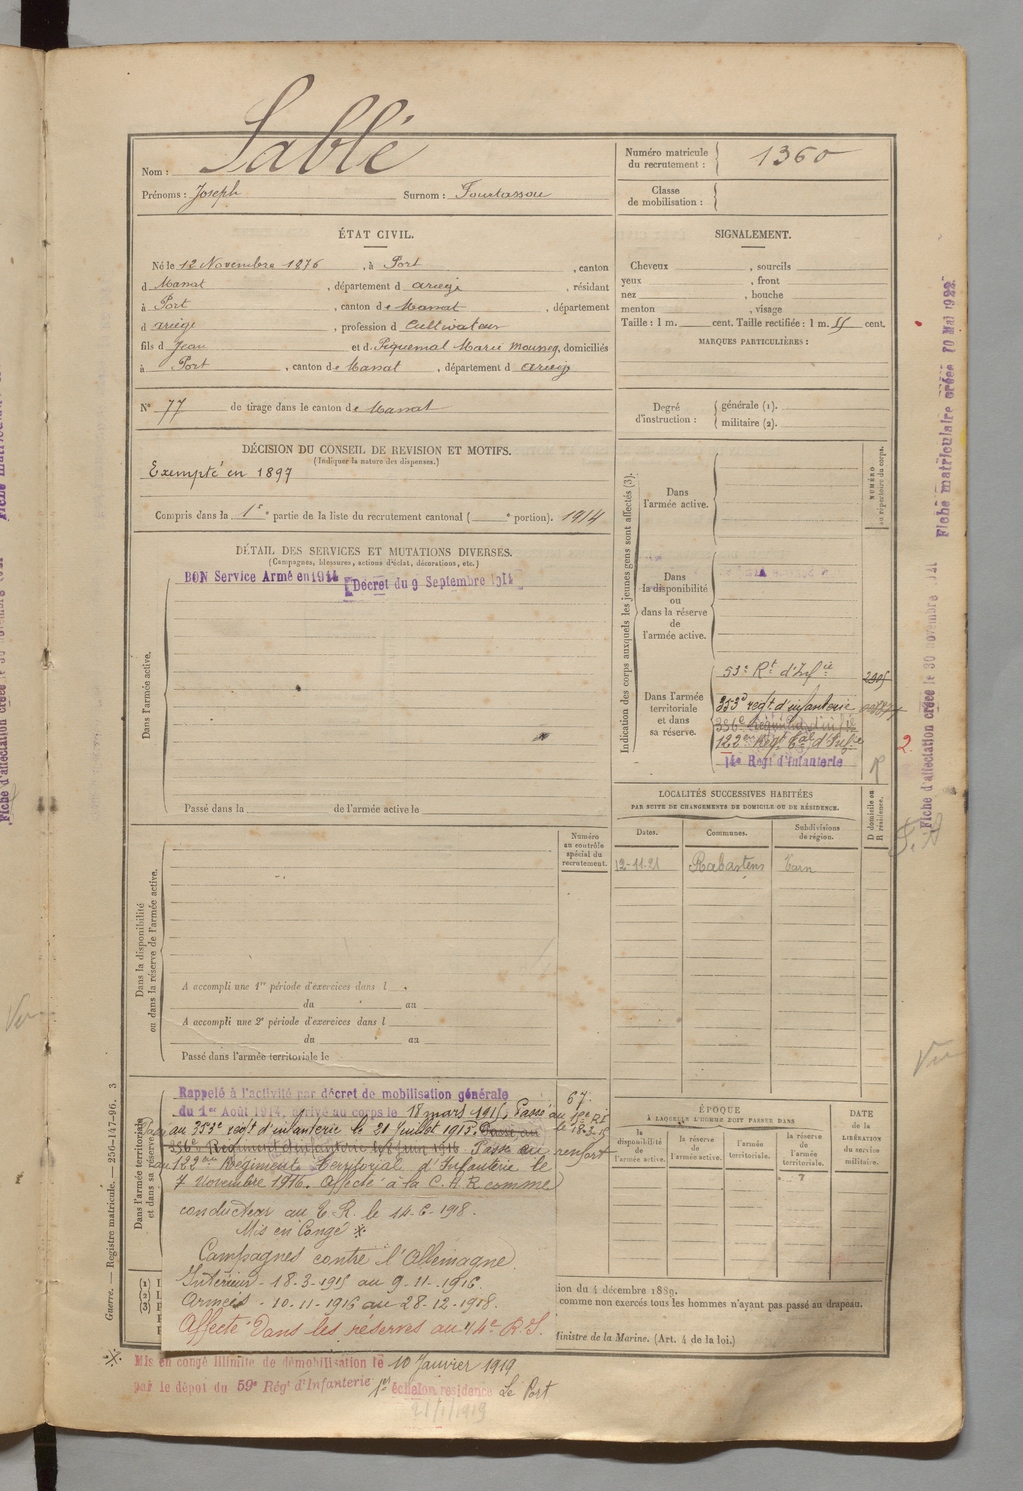 Nom : Sablé
Prénoms : Joseph Surnom : Tourlassou
Numéro matricule du recrutement : 1360
Classe de mobilisation :
ÉTAT CIVIL.
Né le 12 Novembre 1876, à Port, canton
d Massat, département d ariège, résidant
à Port, canton de Massat, département
d ariège, profession d Cultivateur
fils d Jean et d Piquemal Marie, domiciliés
à Port, canton de Massat, département d ariège
N° 77 de tirage dans le canton de Massat
SIGNALEMENT.
Cheveux , sourcils
yeux , front
nez , bouche
menton , visage
Taille : 1 m. cent. Taille rectifiée : 1 m. 55 cent.
MARQUES PARTICULIÈRES :
Degré d'instruction : générale (1).
militaire (2).
DÉCISION DU CONSEIL DE REVISION ET MOTIFS.
(Indiquer la nature des dispenses.)
Exempté en 1897
Compris dans la 1e partie de la liste du recrutement cantonal ( e portion). 1914
DÉTAIL DES SERVICES ET MUTATIONS DIVERSES.
(Campagnes, blessures, actions d'éclat, décorations, etc.)
BON Service Armé en 1914
Décret du 9 Septembre 1914
Dans l'armée active.
Passé dans la de l'armée active le
Indication des corps auxquels les jeunes gens sont affectés (3).
NUMÉRO au répertoire du corps.
Dans l'armée active.
Dans la disponibilité ou dans la réserve de l'armée active.
Dans l'armée territoriale et dans sa réserve.
53e Rt d'Infie
353e regt d'infanterie
356e Régiment d'infie
122e Regt Tal d'Infie
14e Regt d'Infanterie
2.
R
LOCALITÉS SUCCESSIVES HABITÉES
PAR SUITE DE CHANGEMENTS DE DOMICILE OU DE RÉSIDENCE.
Dates. Communes. Subdivisions de région. D domicile ou R résidence.
12-11-21 Rabastens Tarn
Numéro au contrôle spécial du recrutement.
Dans la disponibilité ou dans la réserve de l'armée active.
A accompli une 1re période d'exercices dans l
du au
A accompli une 2e période d'exercices dans l
du au
Passé dans l'armée territoriale le
Dans l'armée territoriale et dans sa réserve.
Rappelé à l'activité par décret de mobilisation générale
du 1er Août 1914, arrivé au corps le 18 mars 1915. Passé
au 353e regt d'infanterie le 21 Juillet 1915. Passé au
356e Régiment d'infanterie le 8 Juin 1916 Passé au
122e Régiment Territorial d'Infanterie le
7 Novembre 1916. Affecté à la C.H.R comme
conducteur au E.R. le 14-6-1918.
Mis en Congé ※
Campagnes contre l'Allemagne
Intérieur - 18-3-1915 au 9-11-1916
Armées - 10-11-1916 au 28-12-1918.
Affecté Dans les réserves au 14e R.I.
67.
le 18-3-15
renfort
ÉPOQUE
À LAQUELLE L'HOMME DOIT PASSER DANS
la disponibilité de l'armée active.
la réserve de l'armée active.
l'armée territoriale.
la réserve de l'armée territoriale.
DATE de la LIBÉRATION du service militaire.
ion du 4 décembre 1889.
comme non exercés tous les hommes n'ayant pas passé au drapeau.
Ministre de la Marine. (Art. 4 de la loi.)
(1)
(2)
(3)
※. Mis en congé illimité de démobilisation le 10 Janvier 1919
par le dépôt du 59e Régt d'Infanterie 1er échelon residence Le Port
21/1/1919
Guerre. — Registre matricule. — 256-147-96. 3
Fiche d'affectation créée le 30 novembre
Fiche matriculaire créée 10 Mai 1922